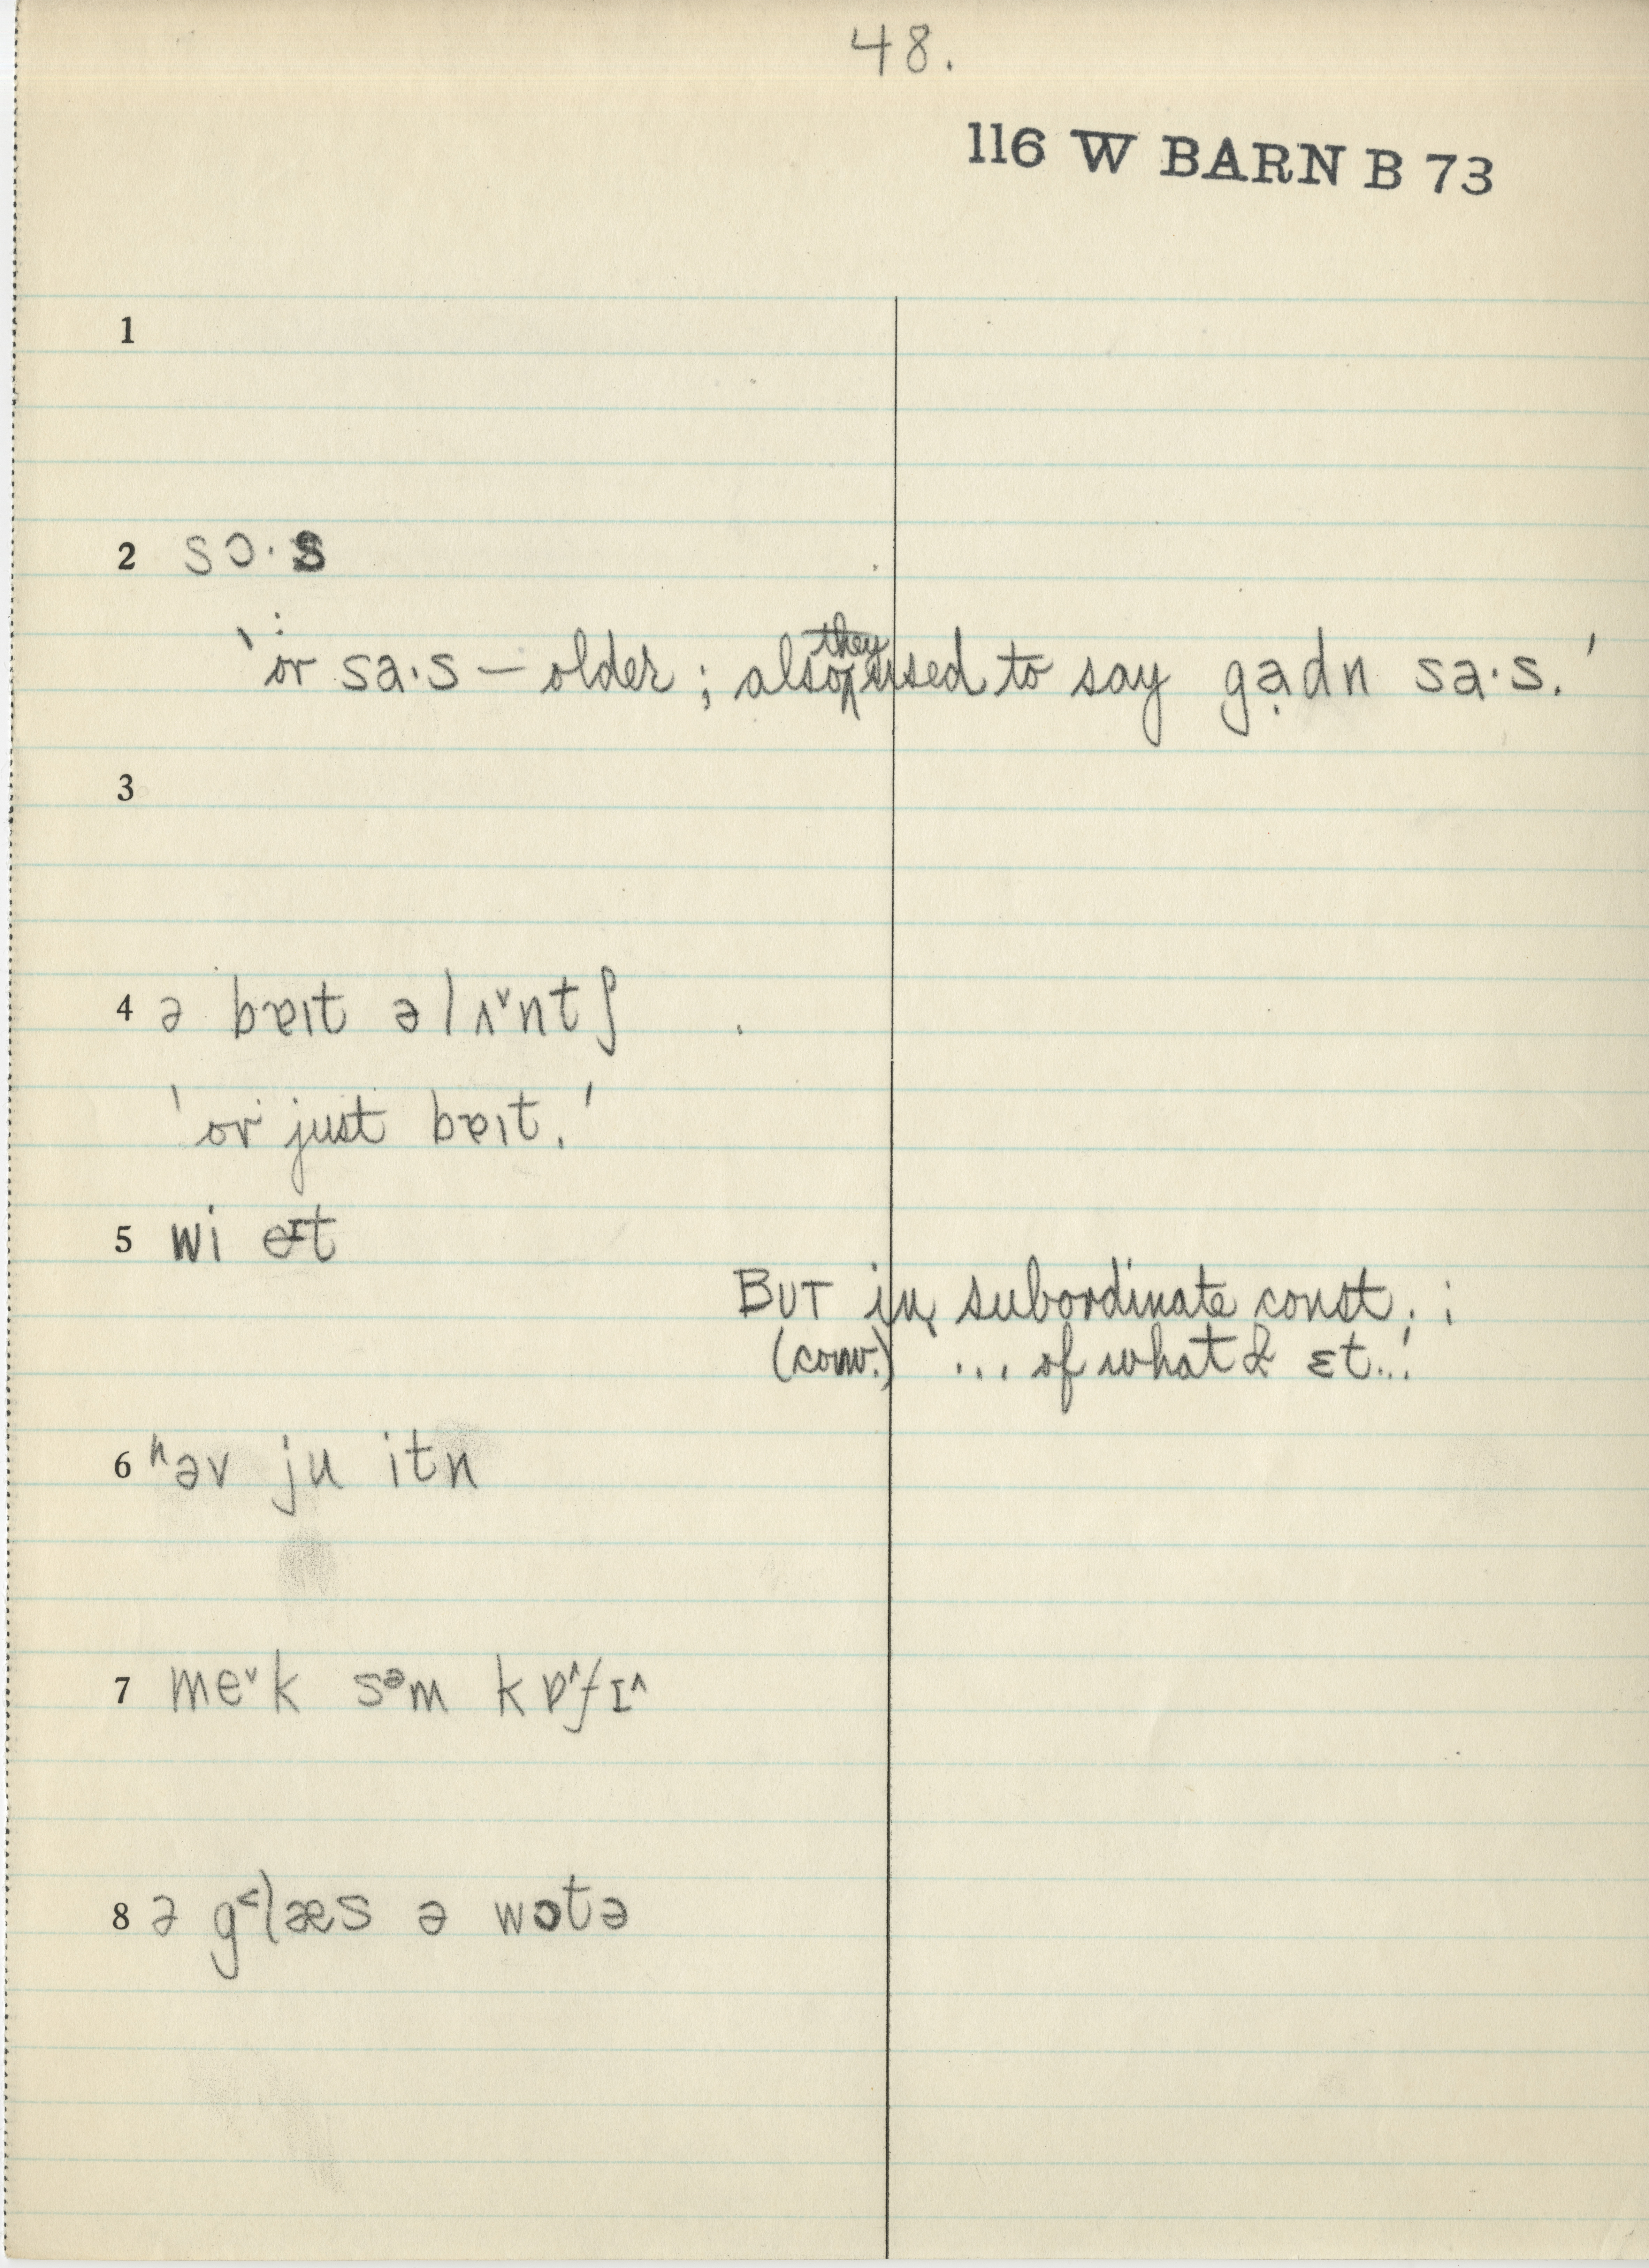 48.
116 W BARN B 73
1
2 sɔ·s
'or sa·s — older ; also they used to say gạdn sa·s.'
3
4 ə bɐɪt ə lʌ˅ntʃ
'or just bɐɪt.'
5 wi eɪt
BUT in subordinate const. :
(conv.) '... of what I ɛt...'
6 ʰəv ju itn
7 me˅k sᵊm kɒ˄fɪ˄
8 ə g˂læs ə wɔtə